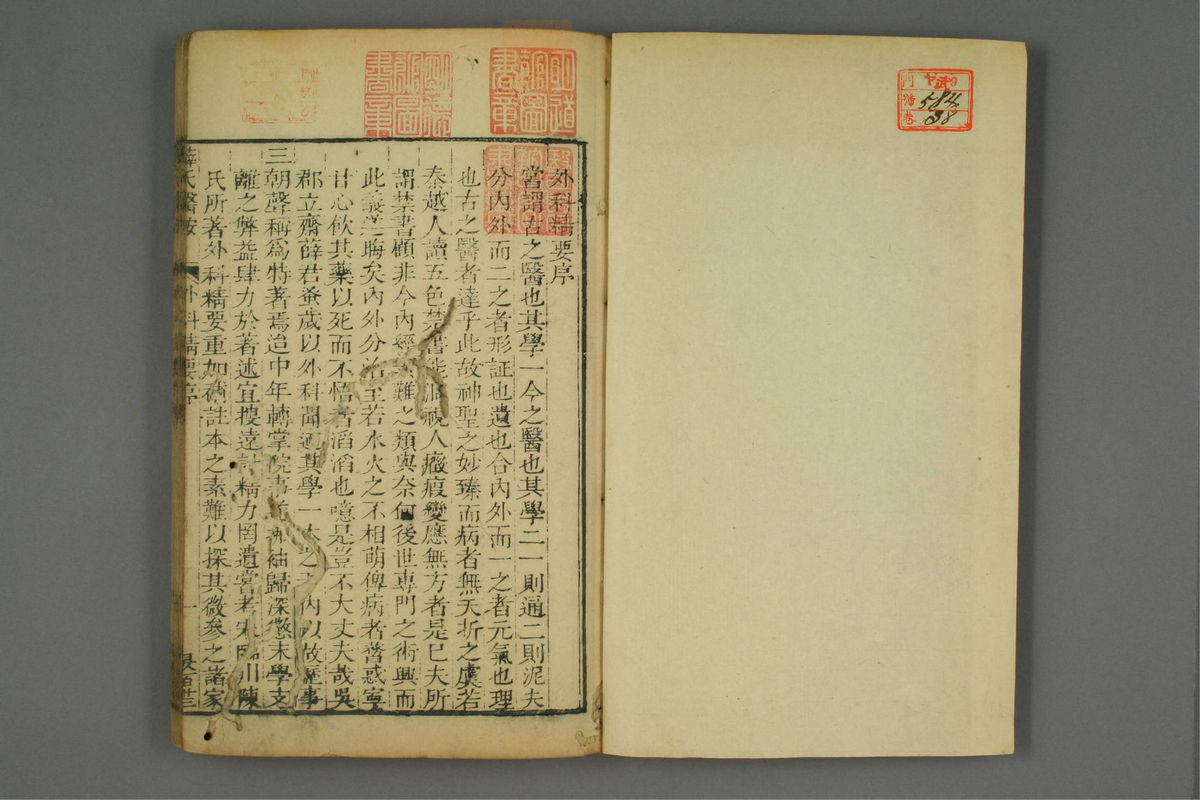 外科精要序
嘗謂古之醫也其學一今之醫也其學二一則通二則泥夫
分內外而二之者形証也遺也合內外而一之者元氣也理
也古之醫者達乎此故神聖之妙臻而病者無夭折之虞若
秦越人讀五色禁書能洞視人癥瘕變應無方者是巳夫所
謂禁書顧非今內經難之類與奈何後世專門之術興而
此義晦矣內外分治至若水火之不相萌俾病者瞀惑寧
甘心飲其藥以死而不悟者滔滔也噫是豈不大丈夫哉吳
郡立齋薛君蚤歲以外科聞其學一本之內以故歷事
三朝聲稱為特著焉迨中年轉掌院事袖歸深懲末學支
離之弊益肆力於著述宜搜遠討精力罔遺嘗考宋臨川陳
氏所著外科精要重加註本之素難以探其微參之諸家
薛氏醫按
外科精要序
一
明德館圖書章
明道館圖書章
584
38